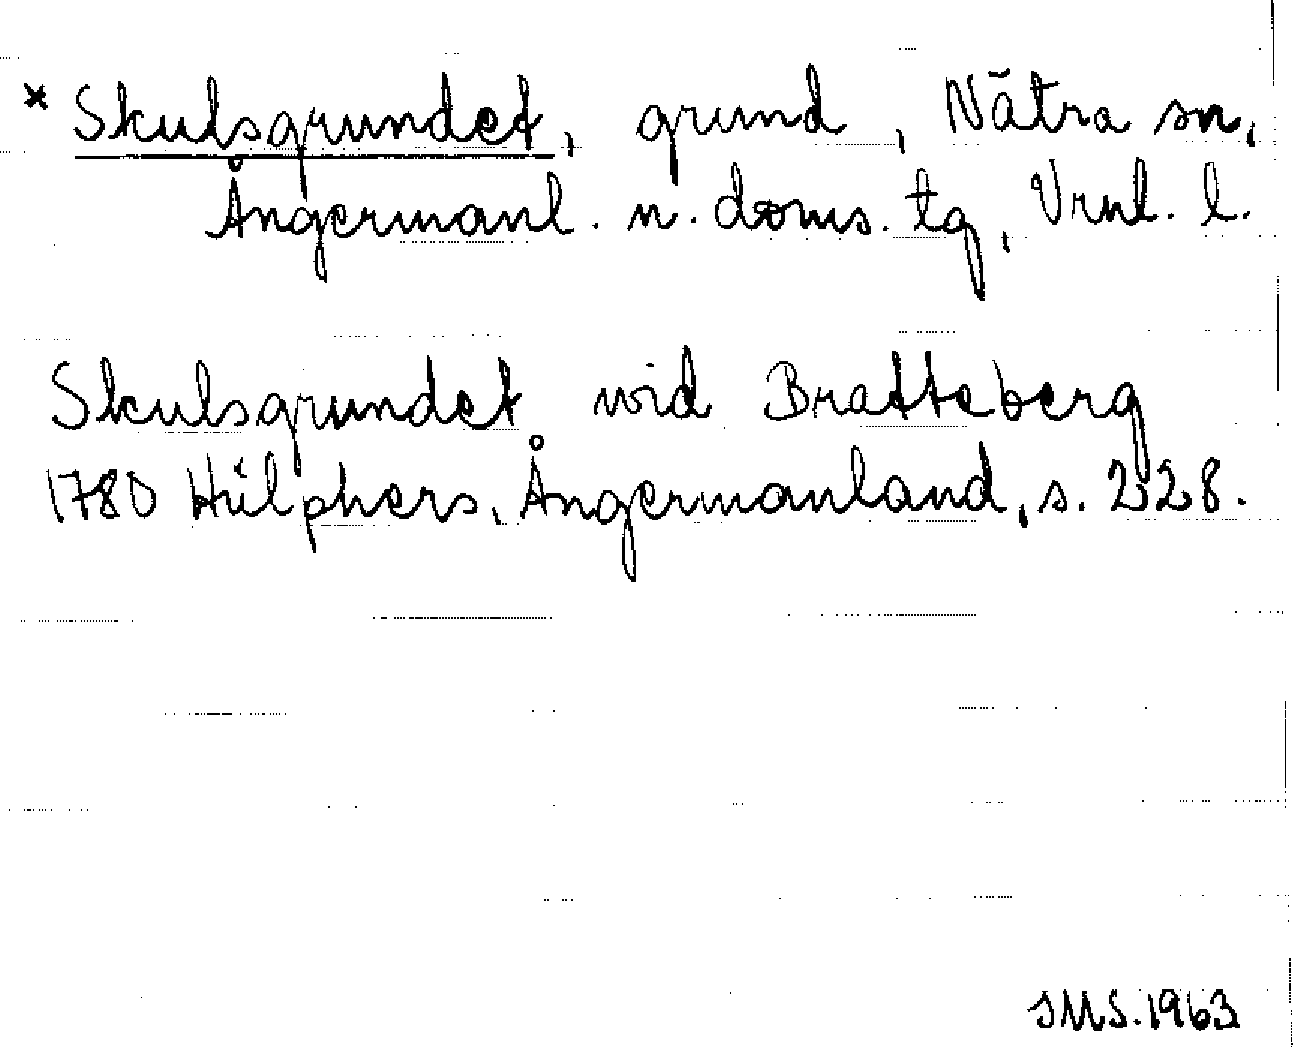 * Skulsgrundet, grund, Nätra sn,
Ångermanl. n. doms. tg, Vrnl. l.
Skulsgrundet wid Bratteberg
1780 Hülphers, Ångermanland, s. 228.
SMS. 1963